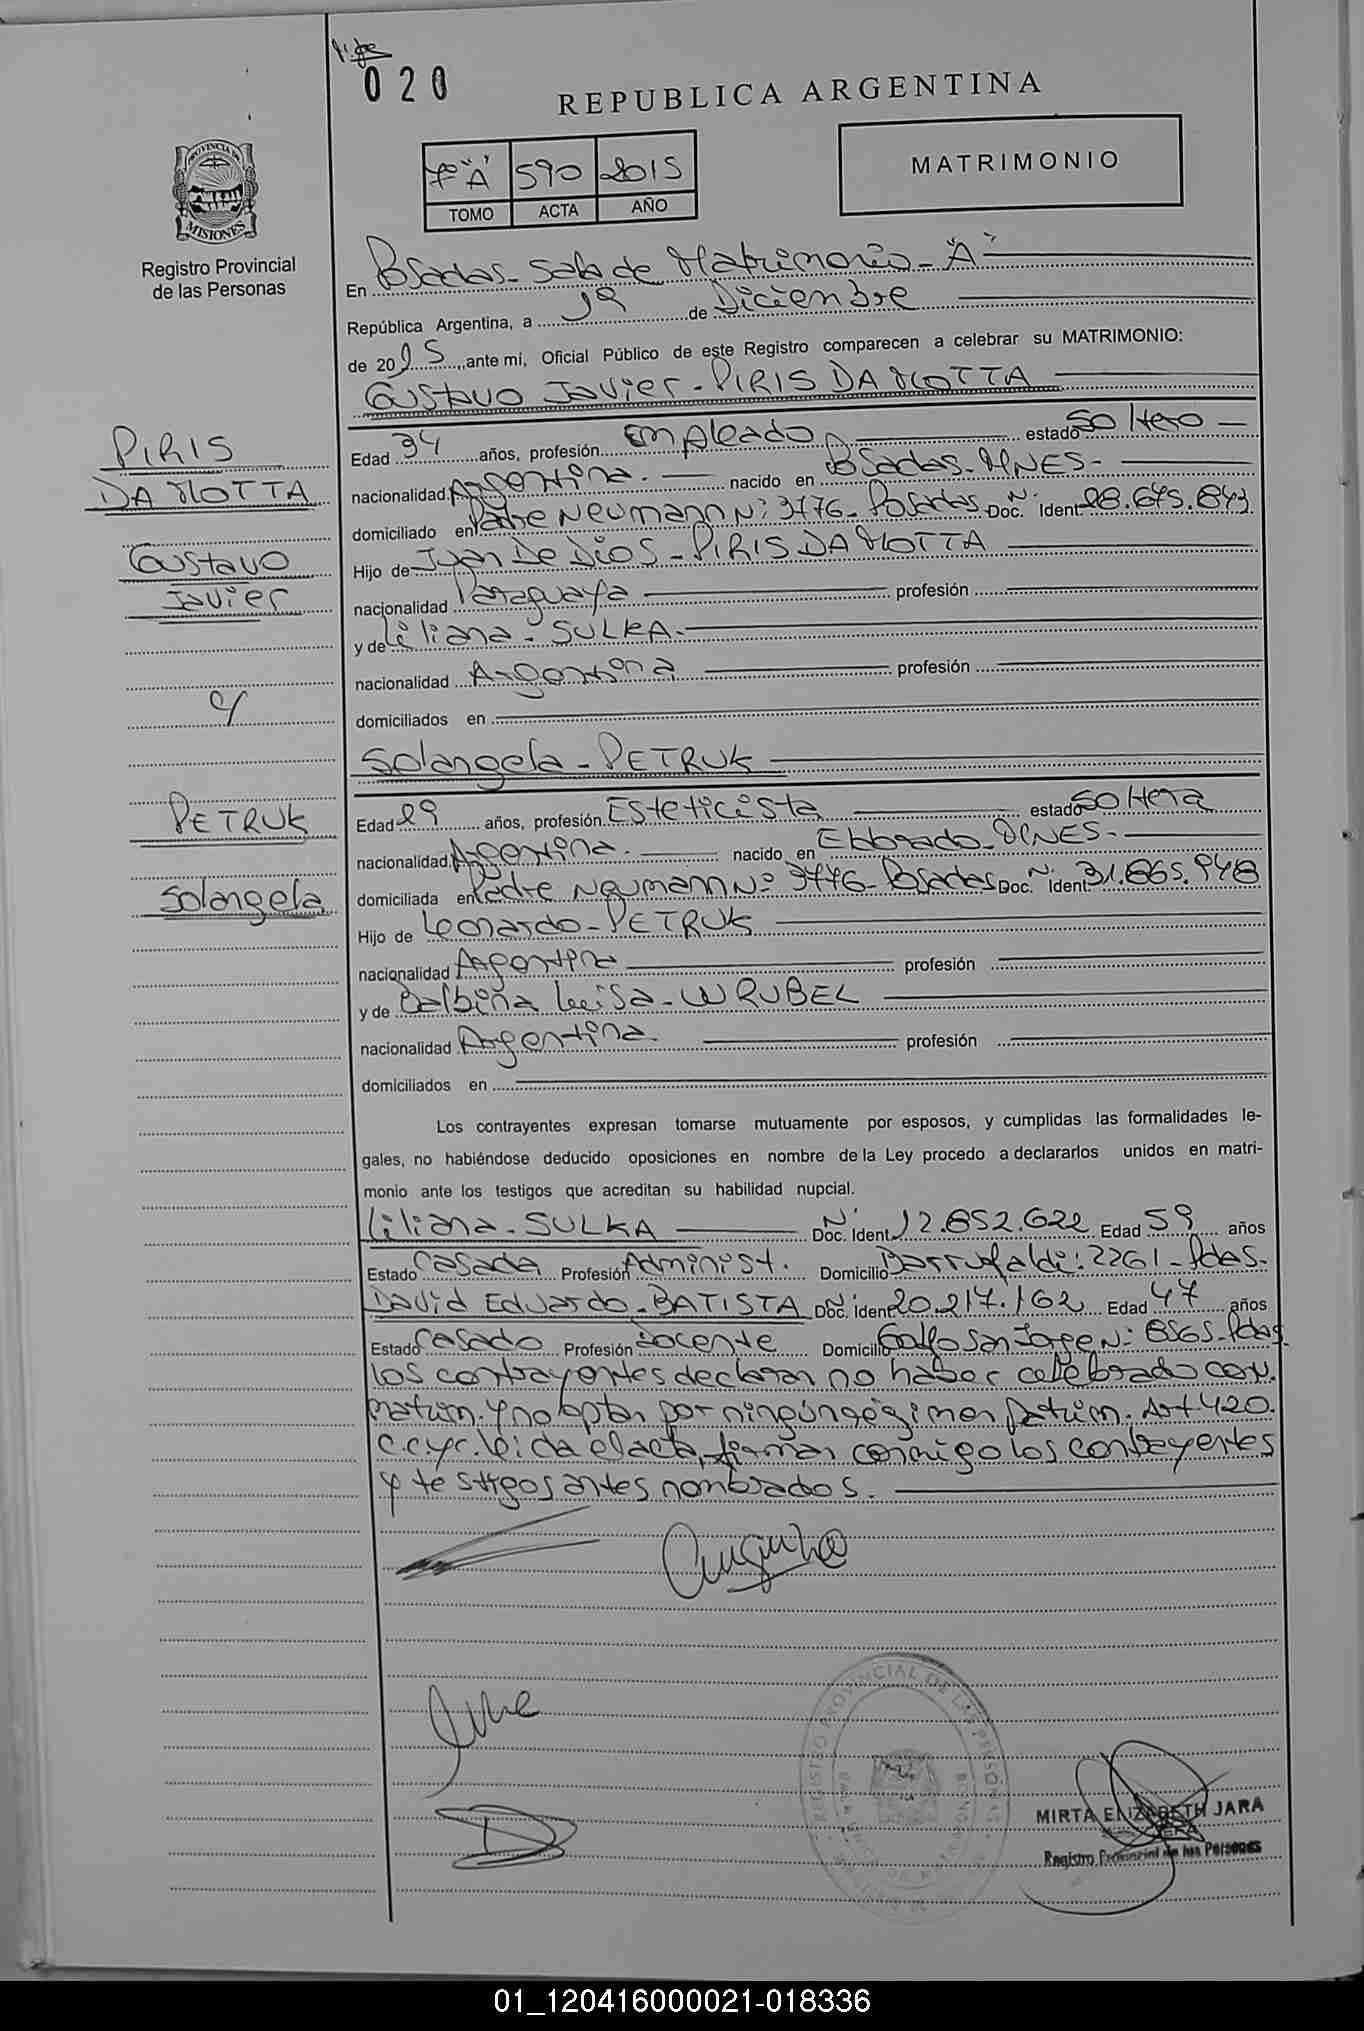 020
REPUBLICA ARGENTINA
7º "A" 590 2015
TOMO ACTA AÑO
MATRIMONIO
PROVINCIA DE
MISIONES
Registro Provincial
de las Personas
En Posadas - Sala de Matrimonio - "A"
República Argentina, a 19 de Diciembre
de 2015, ante mi, Oficial Público de este Registro comparecen a celebrar su MATRIMONIO:
Gustavo Javier - PIRIS DA MOTTA
Edad 34 años, profesión Empleado estado Soltero
nacionalidad Argentina. nacido en Posadas - MNES -
domiciliado en Padre Neumann Nº 3776 - Posadas Doc. Nº Ident. 28.675.843
Hijo de Juan De Dios - PIRIS DA MOTTA
nacionalidad Paraguaya profesión
y de Liliana - SULKA.
nacionalidad Argentina profesión
domiciliados en
Solangela - PETRUK
Edad 29 años, profesión Esteticista estado Soltera
nacionalidad Argentina. nacido en Eldorado - MNES -
domiciliada en Padre Neumann Nº 3776 - Posadas Doc. Nº Ident. 31.865.948
Hijo de Leonardo - PETRUK
nacionalidad Argentina profesión
y de Balbina Luisa - WRUBEL
nacionalidad Argentina. profesión
domiciliados en
PIRIS
DA MOTTA
Gustavo
Javier
c/
PETRUK
Solangela
Los contrayentes expresan tomarse mutuamente por esposos, y cumplidas las formalidades le-
gales, no habiéndose deducido oposiciones en nombre de la Ley procedo a declararlos unidos en matri-
monio ante los testigos que acreditan su habilidad nupcial.
Liliana - SULKA Doc. Nº Ident. 12.852.622 Edad 59 años
Estado Casada Profesión Administ. Domicilio Barrufaldi: 2261 - Pdas.
David Eduardo - BATISTA Doc. Nº Ident. 20.217.162 Edad 47 años
Estado Casado Profesión Docente Domicilio Golfo San Jorge Nº 8565 - Pdas
los contrayentes declaran no haber celebrado conv.
matrim. y no optan por ningún régimen patrim. Art 420.
C.C.yC. leida el acta, firman conmigo los contrayentes
y testigos antes nombrados.
REGISTRO PROVINCIAL DE LAS PERSONAS
MIRTA ELIZABETH JARA
Registro Provincial de las Personas
01_120416000021-018336